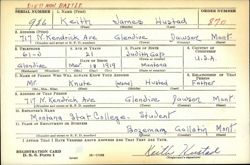 SERIAL NUMBER 1. NAME (Print) ORDER NUMBER
986 Keith James Hustad 870
2. ADDRESS (Print)
717 N. Kendrick Ave Glendive Dawson Mont
3. TELEPHONE 4. AGE IN YEARS 5. PLACE OF BIRTH 6. COUNTRY OF CITIZENSHIP
21 Judith Gap U.S.A.
Glendive Mar 18 1919 Montana
7. NAME OF PERSON WHO WILL ALWAYS KNOW YOUR ADDRESS 8. RELATIONSHIP OF THAT PERSON
Mr. Knute Hustad Father
9. ADDRESS OF THAT PERSON
717 N. Kendrick Ave Glendive Dawson Mont
10. EMPLOYER'S NAME
Montana State College Student
11. PLACE OF EMPLOYMENT OR BUSINESS
Bozeman Gallatin Mont
I AFFIRM THAT I HAVE VERIFIED ABOVE ANSWERS AND THAT THEY ARE TRUE.
REGISTRATION CARD
D. S. S. Form 1
Keith Hustad